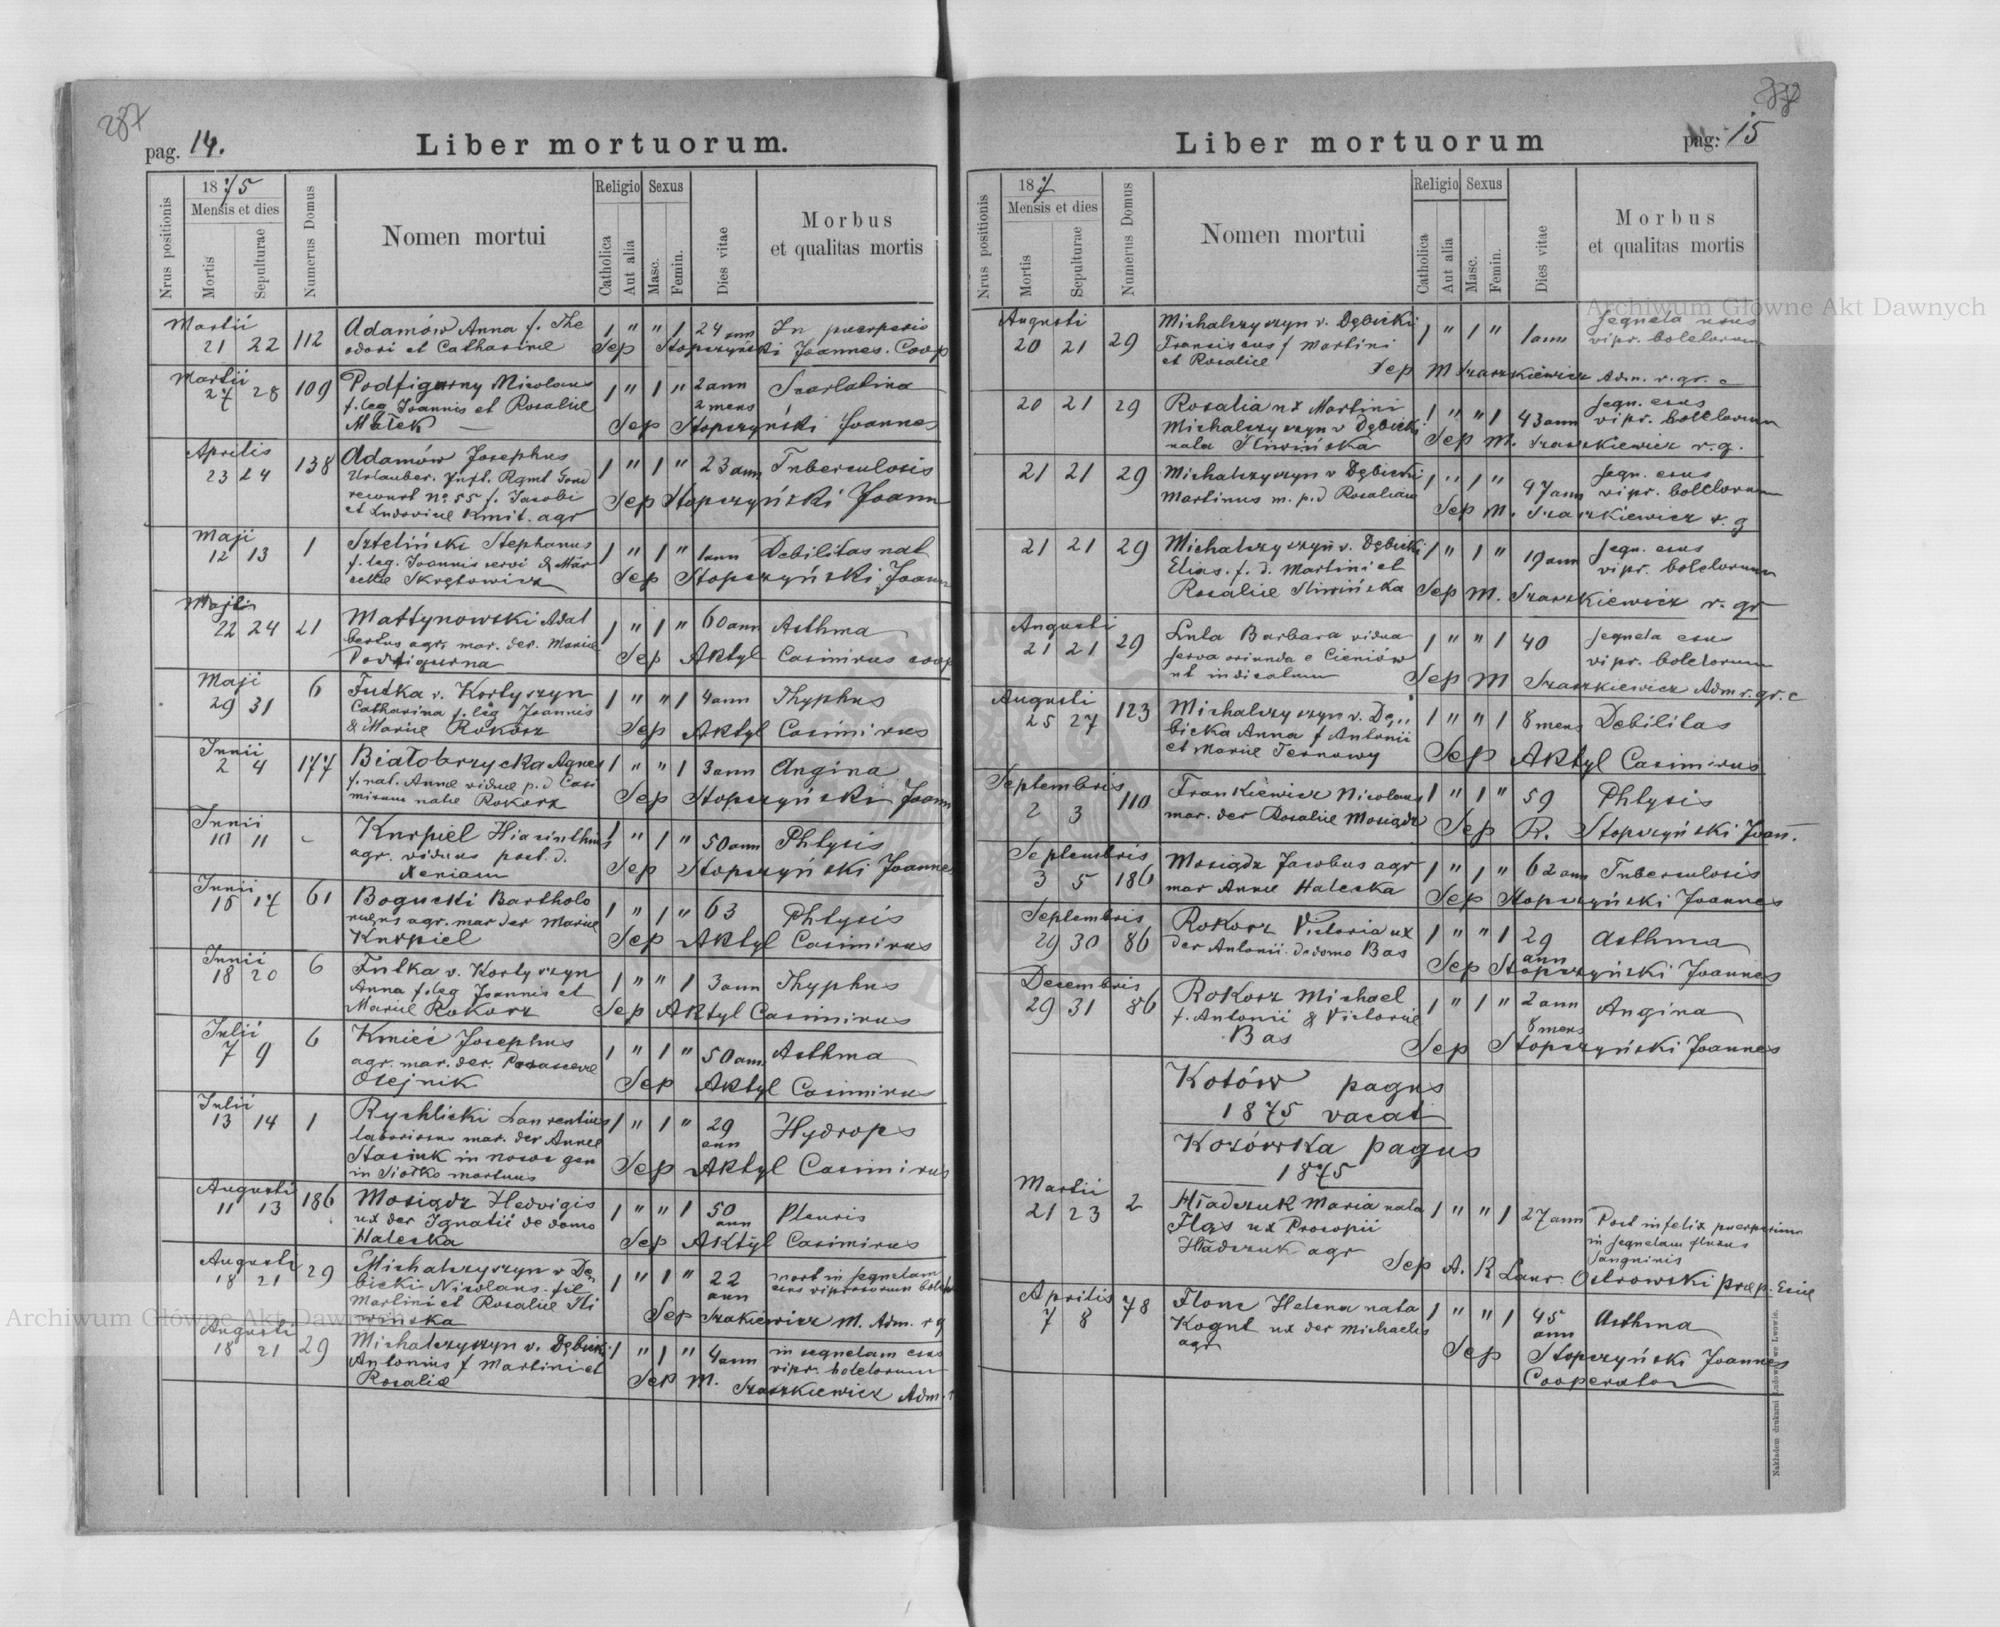 pag. 14.
Liber mortuorum.
1875
Mensis et dies
Nrus positionis
Mortis
Sepulturae
Numerus Domus
Nomen mortui
Religio
Catholica
Aut alia
Sexus
Masc.
Femin.
Dies vitae
Morbus
et qualitas mortis
Martii
21 22 112 Adamów Anna f. The
odori et Catharinæ
1 " " 1 24 ann In puerperio
Sep Stopczyński Joannes. Coop
Martii
27 28 109 Podfigurny Nicolaus
f. leg Joannis et Rosaliæ
Małek
1 " 1 " 2 ann
2 mens
Scarlatina
Sep Stopczyński Joannes
Aprilis
23 24 138 Adamów Josephus
Urlauber. Inft. Rgmt
No 55 f. Jacobi
et Ludovicæ Kmit. agr
1 " 1 " 23 ann Tuberculosis
Sep Stopczyński Joann
Maji
12 13 1 Szteliński Stephanus
f. leg. Joannis servi & Mar
cellæ Skrętowicz
1 " 1 " 1 ann Debilitas nat
Sep Stopczyński Joann
Maji
22 24 21 Mattynowski Adal
bertus agr. mar. der. Mariæ
Podfigurna
1 " 1 " 60 ann Asthma
Sep Aktyl Casimirus coop
Maji
29 31 6 Futka v. Kortyszyn
Catharina f. leg Joannis
& Mariæ Rokosz
1 " " 1 4 ann Thyphus
Sep Aktyl Casimirus
Junii
2 4 177 Białobrzycka Agnes
f. nat. Annæ viduæ p. d Casi
mirum natæ Rokosz
1 " " 1 3 ann Angina
Sep Stopczyński Joann
Junii
10 11 - Kurpiel Hiacinthus
agr. viduus post. d.
Xeniam
1 " 1 " 50 ann Phtysis
Sep Stopczyński Joannes
Junii
16 17 61 Bogucki Bartholo
meus agr. mar der Mariæ
Kurpiel
1 " 1 " 63 Phtysis
Sep Aktyl Casimirus
Junii
18 20 6 Futka v. Kortyszyn
Anna f. leg Joannis et
Mariæ Rokosz
1 " " 1 3 ann Thyphus
Sep Aktyl Casimirus
Julii
7 9 6 Kmieć Josephus
agr. mar. der. Parascevæ
Olejnik
1 " 1 " 50 ann Asthma
Sep Aktyl Casimirus
Julii
13 14 1 Rychlicki Laurentius
mar. der Annæ
Stasiuk in
in Siołko mortuus
1 " 1 " 29
ann
Hydrops
Sep Aktyl Casimirus
Augusti
11 13 186 Mosiądz Hedvigis
ux der Ignatii de domo
Halecka
1 " " 1 50
ann
Pleuris
Sep Aktyl Casimirus
Augusti
18 21 29 Michalczyszyn v Dę
bicki Nicolaus. fil
Martini et Rosaliæ Śli
wińska
1 " 1 " 22
ann
mort in sequelam
esus
Sep Szakiewicz M. Adm. r g
Augusti
18 21 29 Michalczyszyn v. Dębicki
Antonius f Martini et
Rosaliæ
1 " 1 " 4 ann in sequelam esus
vipr. boletorum
Sep M. Szaszkiewicz Adm.
Liber mortuorum
pag: 15
187
Mensis et dies
Nrus positionis
Mortis
Sepulturae
Numerus Domus
Nomen mortui
Religio
Catholica
Aut alia
Sexus
Masc.
Femin.
Dies vitae
Morbus
et qualitas mortis
Augusti
20 21 29 Michalczyszyn v. Dębicki
Franciscus f Martini
et Rosaliæ
1 " 1 " 1 ann Sequela esus
vipr. boletorum
Sep M Szaszkiewicz Adm. r. gr. c
20 21 29 Rosalia ux Martini
Michalczyszyn v Dębicki
nata Śliwińska
1 " " 1 43 ann sequ. esus
vipr. boletorum
Sep M. Szaszkiewicz r. g.
21 21 29 Michalczyszyn v Dębicki
Martinus m. p. d Rosaliam
1 " 1 " 47 ann sequ. esus
vipr. boletorum
Sep M. Szaszkiewicz r. g
21 21 29 Michalczyszyn v. Dębicki
Elias. f. d. Martini et
Rosaliæ Śliwińska
1 " 1 " 19 ann sequ. esus
vipr. boletorum
Sep M. Szaszkiewicz r. gr
Augusti
21 21 29 Lula Barbara vidua
serva oriunda e Cieniów
ut indicatum
1 " " 1 40 sequela esus
vipr. boletorum
Sep M Szaszkiewicz Adm r. gr. c
Augusti
25 27 123 Michalczyszyn v. Dę
bicka Anna f Antonii
et Mariæ Ternowy
1 " " 1 8 mens Debilitas
Sep Aktyl Casimirus
Septembris
2 3 110 Frankiewicz Nicolaus
mar. der Rosaliæ Mosiądz
1 " 1 " 59 Phtysis
Sep R. Stopczyński Joan.
Septembris
3 5 186 Mosiądz Jacobus agr
mar Annæ Halecka
1 " 1 " 62 ann Tuberculosis
Sep Stopczyński Joannes
Septembris
29 30 86 Rokosz Victoria ux
der Antonii. de domo Bas
1 " " 1 29
ann
Asthma
Sep Stopczyński Joannes
Decembris
29 31 86 Rokosz Michael
f. Antonii & Victoriæ
Bas
1 " 1 " 2 ann
8 mens
Angina
Sep Stopczyński Joannes
Kotów pagus
1875 vacat
Kozówka pagus
1875
Martii
21 23 2 Hładczuk Maria nata
Flas ux Procopii
Hładczuk agr
1 " " 1 27 ann Post infelix puerperium
in sequelam fluxus
sanguinis
Sep A. R Laur. Ostrowski præp.
Aprilis
7 8 78 Flonc Helena nata
Kogut ux der Michaelis
agr
1 " " 1 45
ann
Asthma
Sep Stopczyński Joannes
Cooperator
Nakładem drukarni Ludowej we Lwowie.
Archiwum Główne Akt Dawnych
Archiwum Główne Akt Dawnych